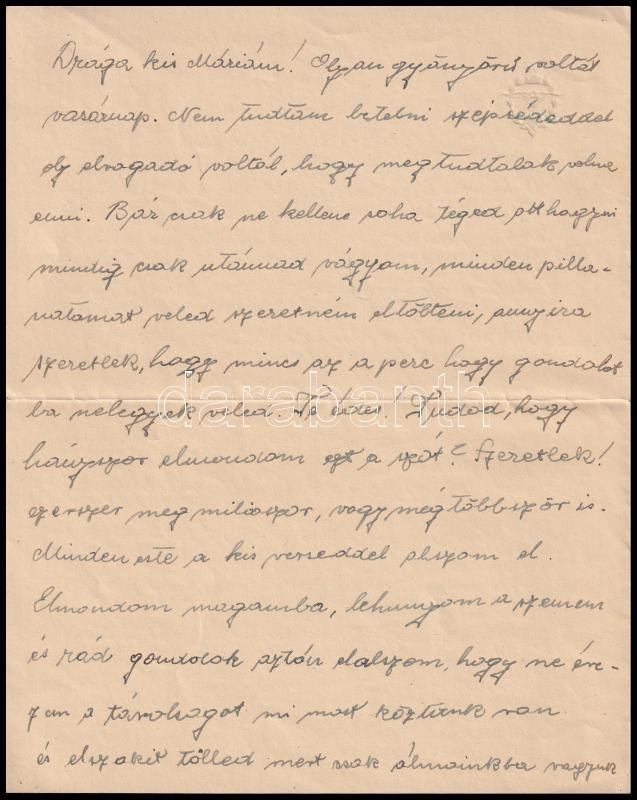 Drága kis Máriám! Olyan gyönyörű voltál
vasárnap. Nem tudtam betelni szépségeddel
oly elragadó voltál, hogy meg tudtalak volna
enni. Bár csak ne kellene soha téged ott hagyni
mindig csak utánnad vágyom, minden pilla-
natomat veled szeretném eltölteni, annyira
szeretlek, hogy nincs az a perc hogy gondolat
ba nelegyek veled. Te édes! Tudod, hogy
hányszor elmondom ezt a szót? Szeretlek!
ezerszer meg milioszor, vagy még többször is.
Minden este a kis verseddel alszom el.
Elmondom magamba, lehunyom a szemem
és rád gondolok aztán elalszom, hogy ne érez-
zem a távolságot mi most köztünk van
és elszakit tölled mert csak álmainkba vagyunk
darabanth